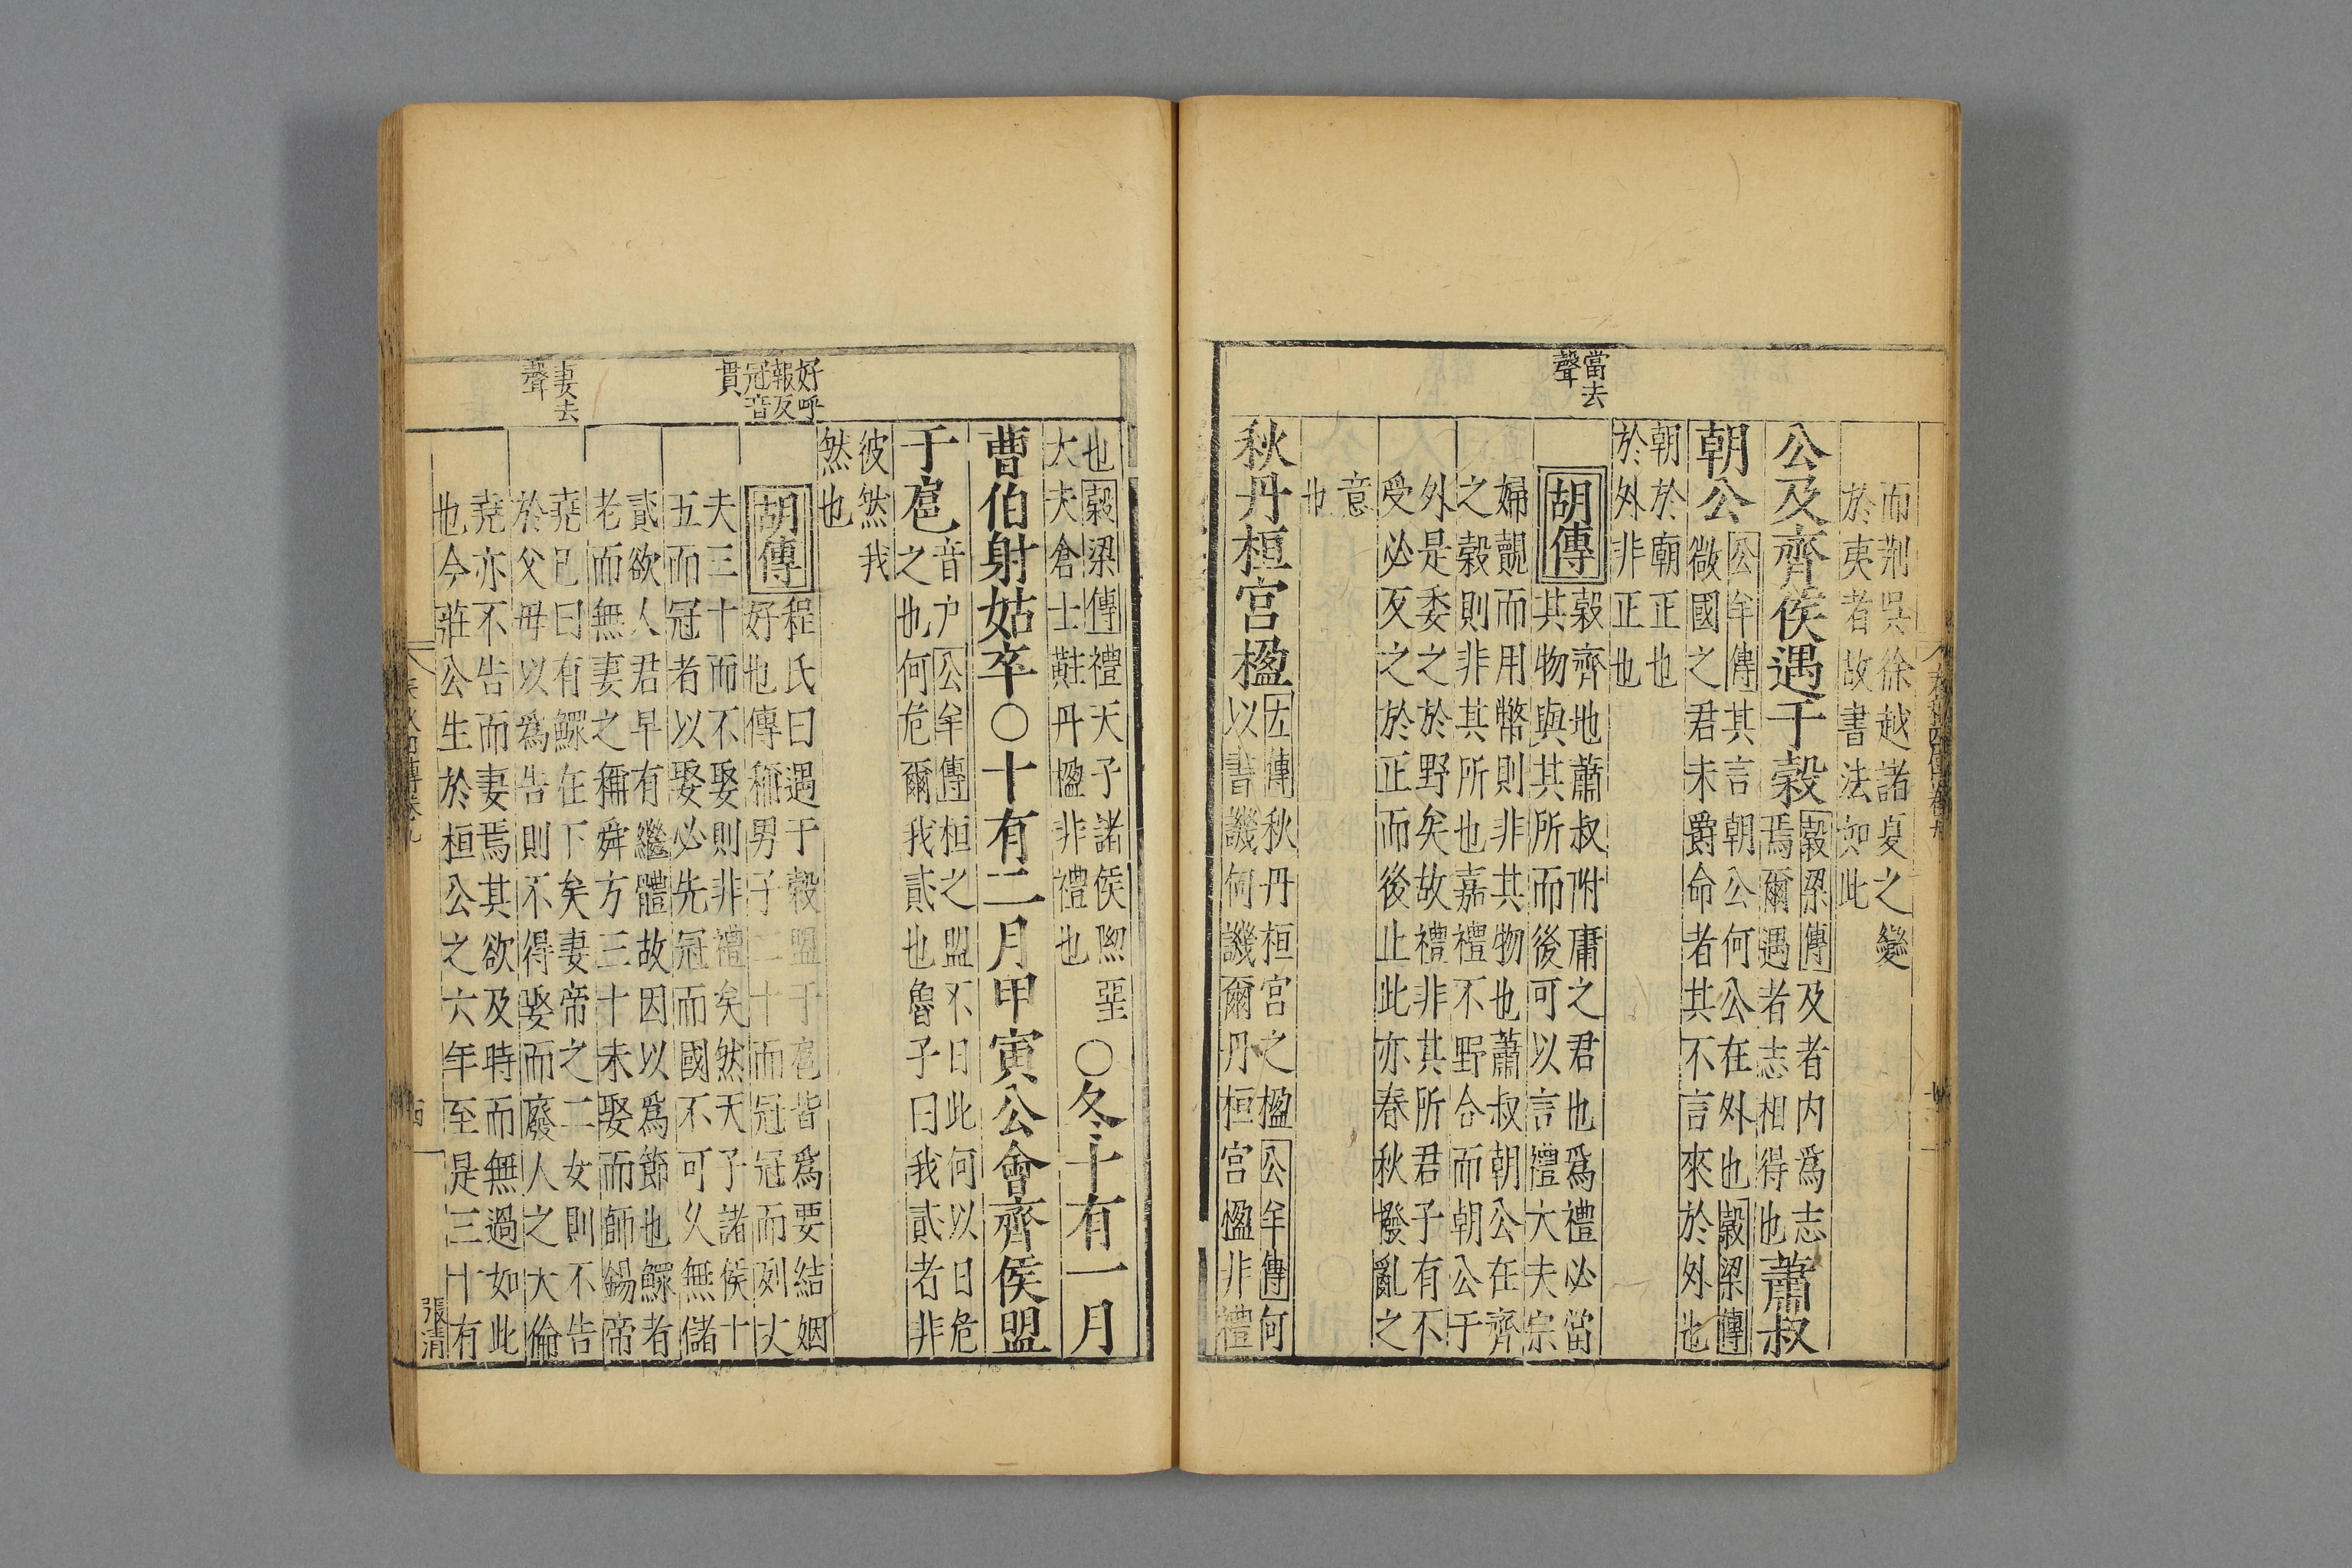 當去
聲
而荆吳徐越諸夏之變
於夷者故書法如此
公及齊侯遇于穀
穀梁傳及者内爲志
焉爾遇者志相得也
蕭叔
朝公
公羊傳其言朝公何公在外也穀梁傳
微國之君未爵命者其不言來於外也
朝於廟正也
於外非正也
胡傳
穀齊地蕭叔附庸之君也爲禮必當
其物與其所而後可以言禮大夫宗
婦覿而用幣則非其物也蕭叔朝公在齊
之穀則非其所也嘉禮不野合而朝公于
外是委之於野矣故禮非其所君子有不
受必反之於正而後止此亦春秋撥亂之
意
也
秋丹桓宮楹
左傳秋丹桓宮之楹公羊傳何
以書譏何譏爾丹桓宮楹非禮
好呼
報反
冠音
貫
妻去
聲
也穀梁傳禮天子諸侯黝堊
大夫倉士黈丹楹非禮也
○冬十有一月
曹伯射姑卒○十有二月甲寅公會齊侯盟
于扈
音户公羊傳桓之盟不日此何以日危
之也何危爾我貳也魯子曰我貳者非
彼然我
然也
胡傳
程氏曰遇于穀盟于扈皆爲要結姻
好也傳稱男子二十而冠冠而列丈
夫三十而不娶則非禮矣然天子諸侯十
五而冠者以娶必先冠而國不可久無儲
貳欲人君早有繼體故因以爲節也鰥者
老而無妻之稱舜方三十未娶而師錫帝
堯已曰有鰥在下矣妻帝之二女則不告
於父母以爲告則不得娶而廢人之大倫
堯亦不告而妻焉其欲及時而無過如此
也今莊公生於桓公之六年至是三十有
張清